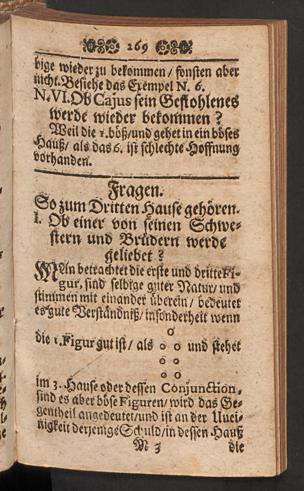 269
bige wieder zu bekommen / sonsten aber
nicht. Besiehe das Exempel N. 6.
N. VI. Ob Cajus sein Gestohlenes
werde wieder bekommen?
Weil die 1. böß / und gehet in ein böses
Hauß / als das 6. ist schlechte Hoffnung
vorhanden.
Fragen.
So zum Dritten Hause gehören.
I. Ob einer von seinen Schwe-
stern und Brüdern werde
geliebet?
MAn betrachtet die erste und dritte Fi-
gur, sind selbige guter Natur / und
stimmen mit einander überein / bedeutet
es gute Verständniß / insonderheit wenn
die 1. Figur gut ist / als und stehet
im 3. Hause oder dessen Conjunction,
sind es aber böse Figuren / wird das Ge-
gentheil angedeutet / und ist an der Unei-
nigkeit derjenige Schuld / in dessen Hauß
M 3 die